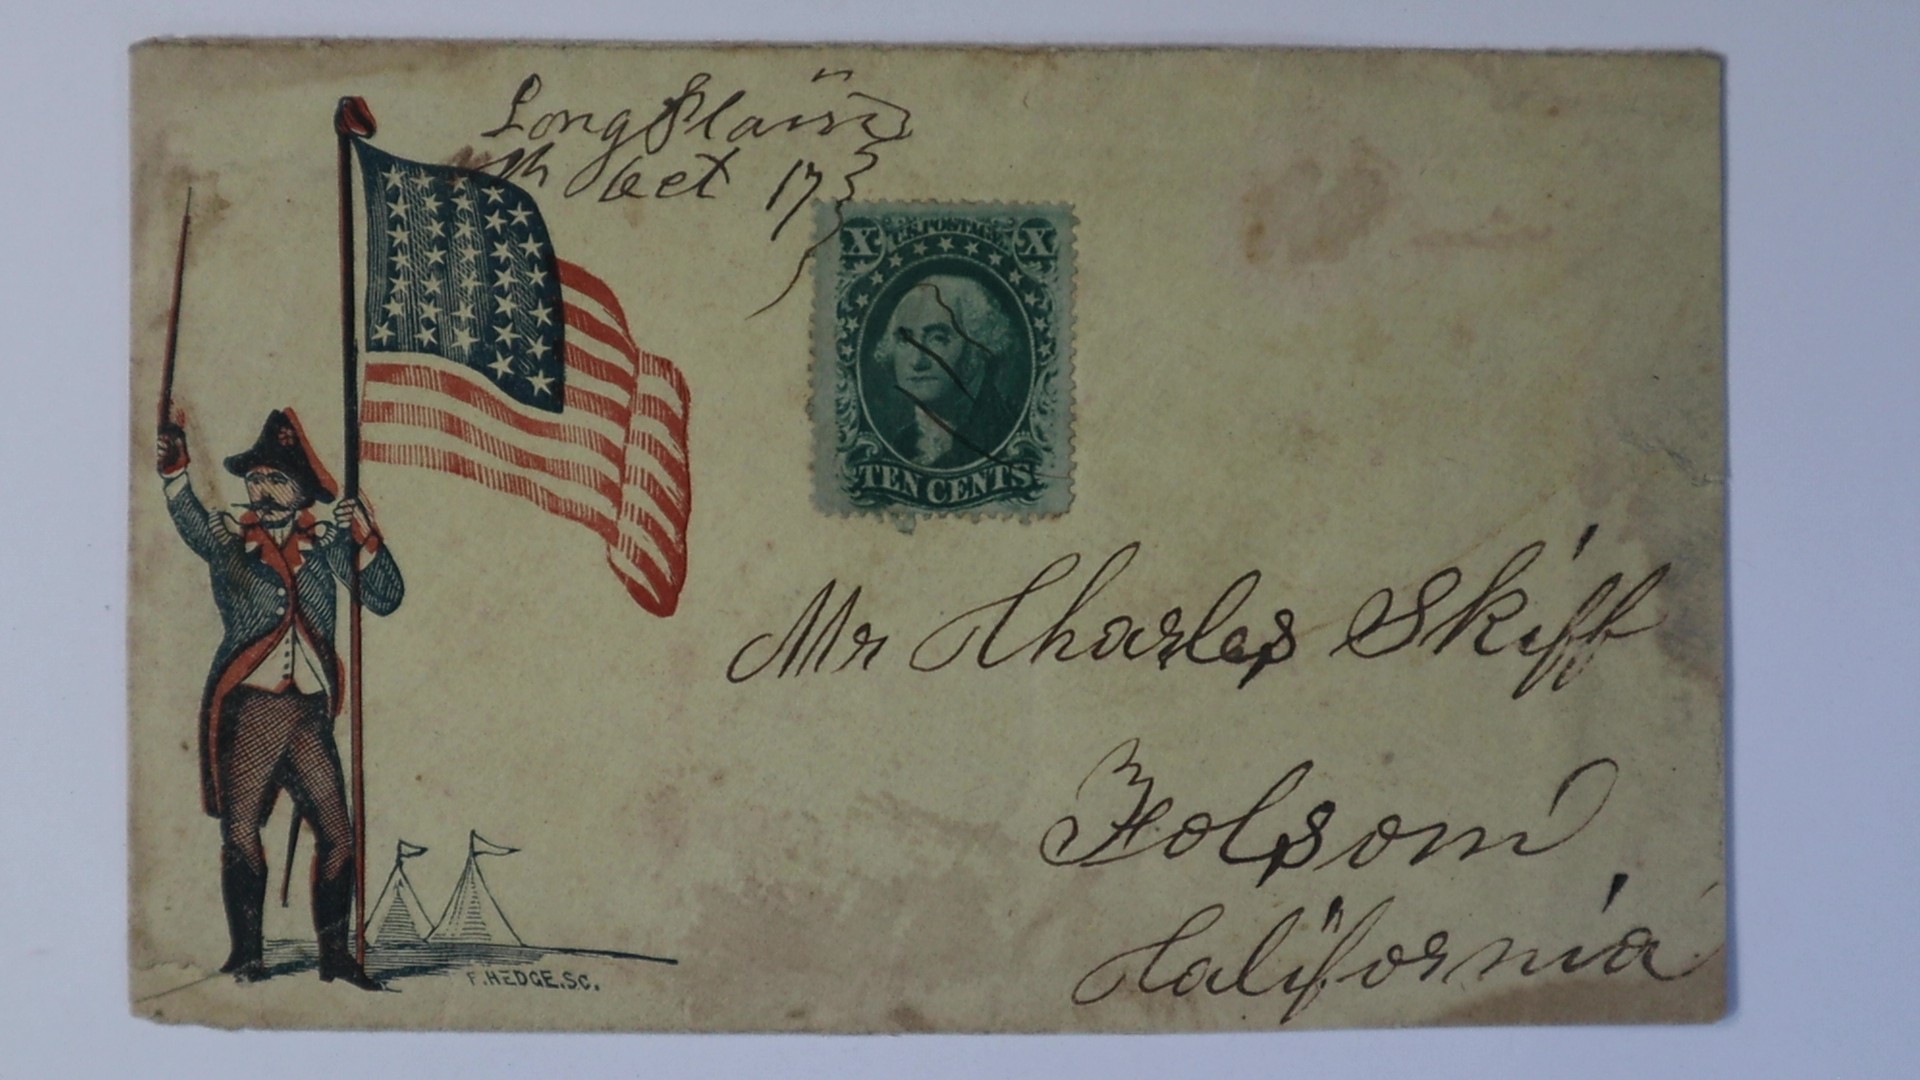 Long Plain
Oct 17
X U.S. POSTAGE X
TEN CENTS
Mr Charles Skiff
Folsom
California
F. HEDGE. SC.